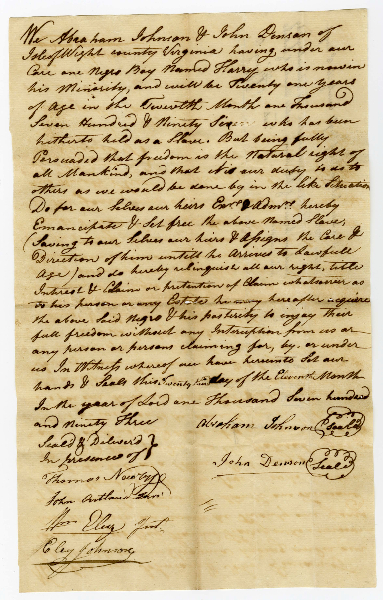 We Abraham Johnson & John Denson of
Isle of Wight county Virginia having under our
Care one Negro Boy Named Harry who is now in
his Minority, and will be Twenty one years
of Age in the Twelfth Month one Thousand
Seven Hundred & Ninety Seven who has been
hitherto held as a Slave. But being fully
Persuaded that freedom is the Natural right of
all Mankind, and that it is our duty to do to
others as we would be done by in the like Situation
Do for our Selves our heirs Exrs & Admrs hereby
Emancipate & Set free the above Named Slave,
(Saving to our Selves our heirs & Assigns the Care &
Direction of him untill he Arrives to Lawfull
Age) and do hereby relinquish all our right, title
Interest & Claim or pretention of Claim whatsoever as
to his person or any Estate he may hereafter acquire
the above said Negro & his posterity to enjoy their
full freedom without any Interruption from us or
any person or persons claiming for, by, or under
us. In Witness whereof we have hereunto Set our
hands & Seals this day of the Eleventh Month
In the year of Lord one Thousand Seven hundred
and Ninety Three
Abraham Johnson Seal'd
Seald & Deliverd
In presence of
John Denson Seal'd
Thomas Newby
John
Wm Eley
Eley Johnson